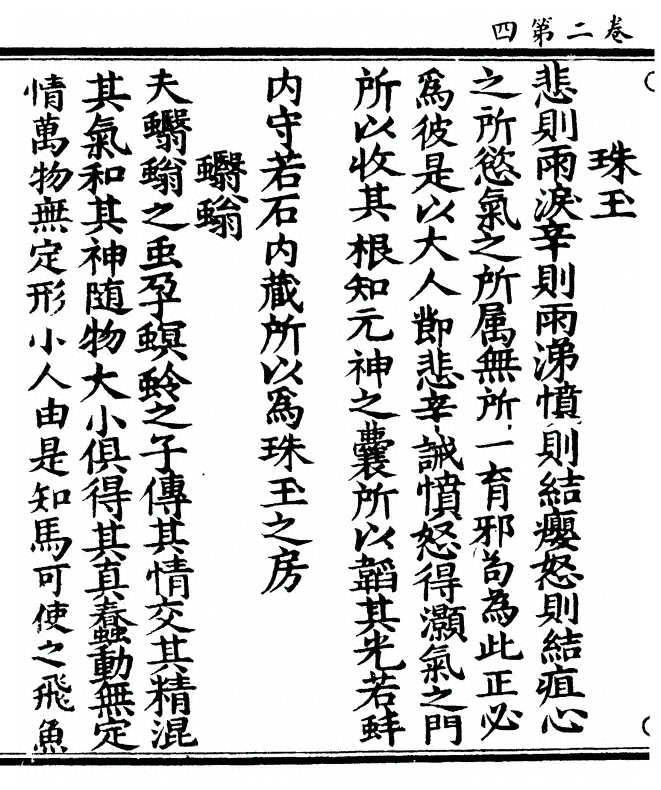 卷二第四
珠玉
悲則雨淚辛則雨涕憤則結癭怒則結疽心
之所慾氣之所属無所一育邪苟為此正必
爲彼是以大人莭悲辛誡憤怒得灝氣之門
所以收其根知元神之囊所以韜其光若蚌
内守若石内藏所以爲珠玉之房
蠮螉
夫蠮螉之虫孕螟蛉之子傳其情交其精混
其氣和其神随物大小俱得其真蠢動無定
情萬物無定形小人由是知馬可使之飛魚